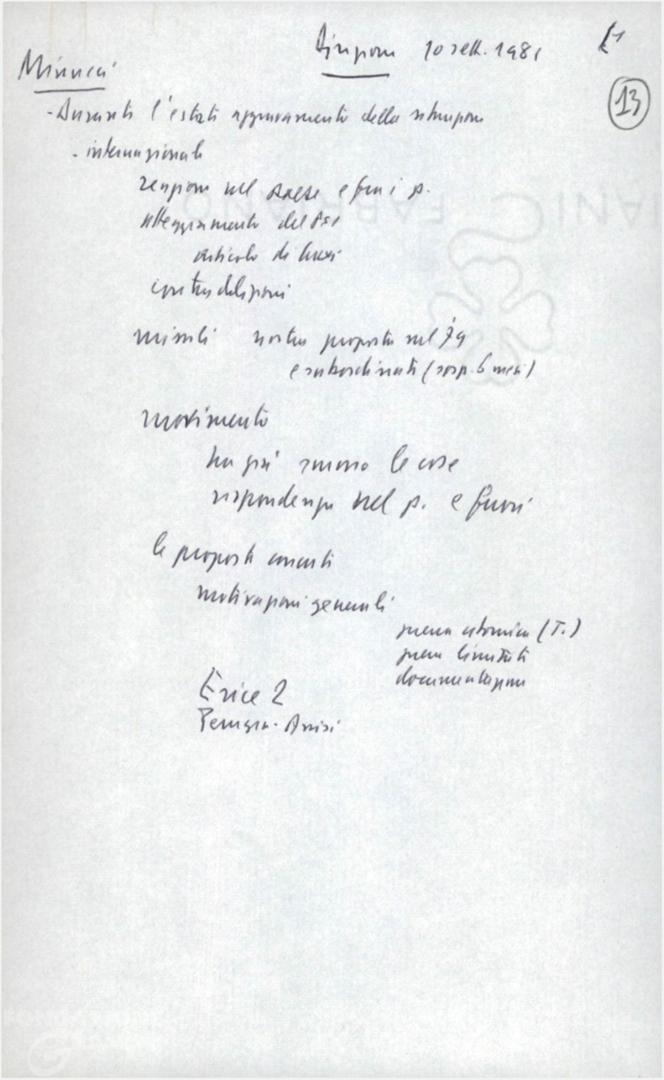 Direzione 10 sett. 1981
13
Minucci
- Durante l'estate aggravamento della situazione
- internazionale
reazione nel paese e fuori p.
atteggiamento del PSI
articolo di Craxi
contraddizioni
missili nostra proposta nel 79
e subordinate (sosp. 6 mesi)
movimento
ha già smosso le cose
rispondenza nel p. e fuori
le proposte
motivazioni generali
guerra atomica (T.)
guerra limitata
documentazione
Erice 2
Perugia-Assisi
FABRIANO